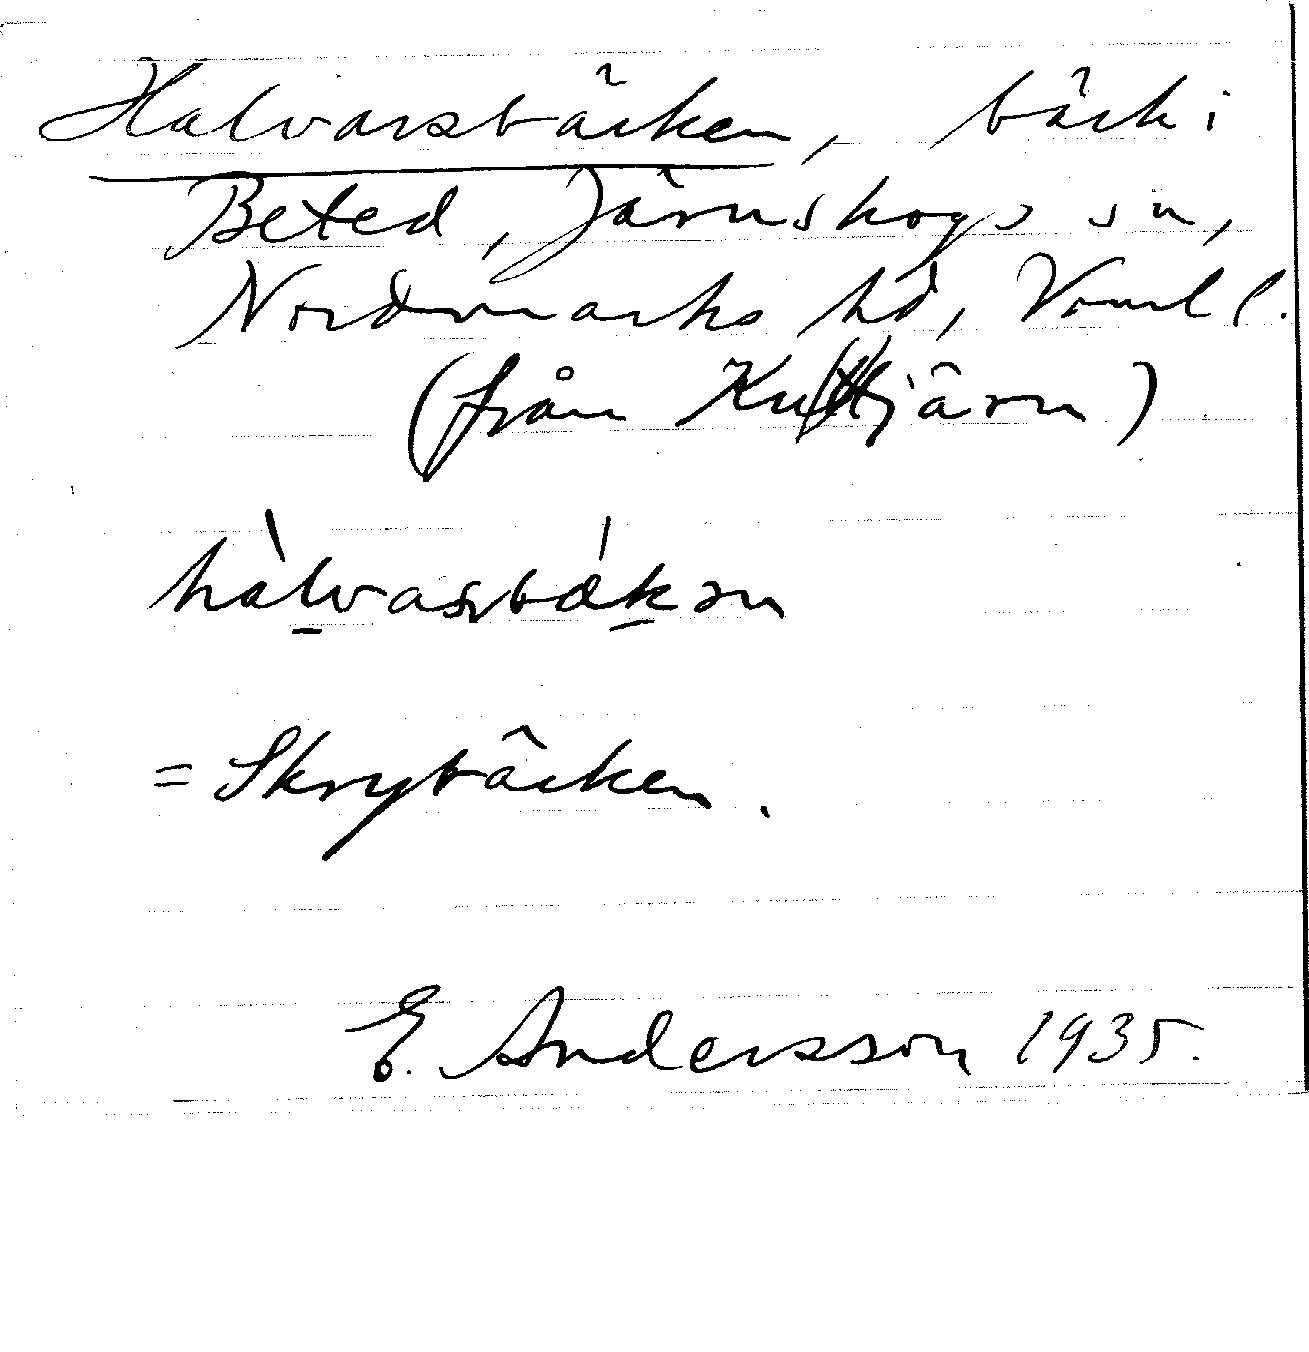 Halvarsbäcken, bäck i
Beted, Järnskogs sn,
Nordmarks hd, Värml l.
(från
hàlvasbǽkən
= Skrybäcken.
E. Andersson 1935.